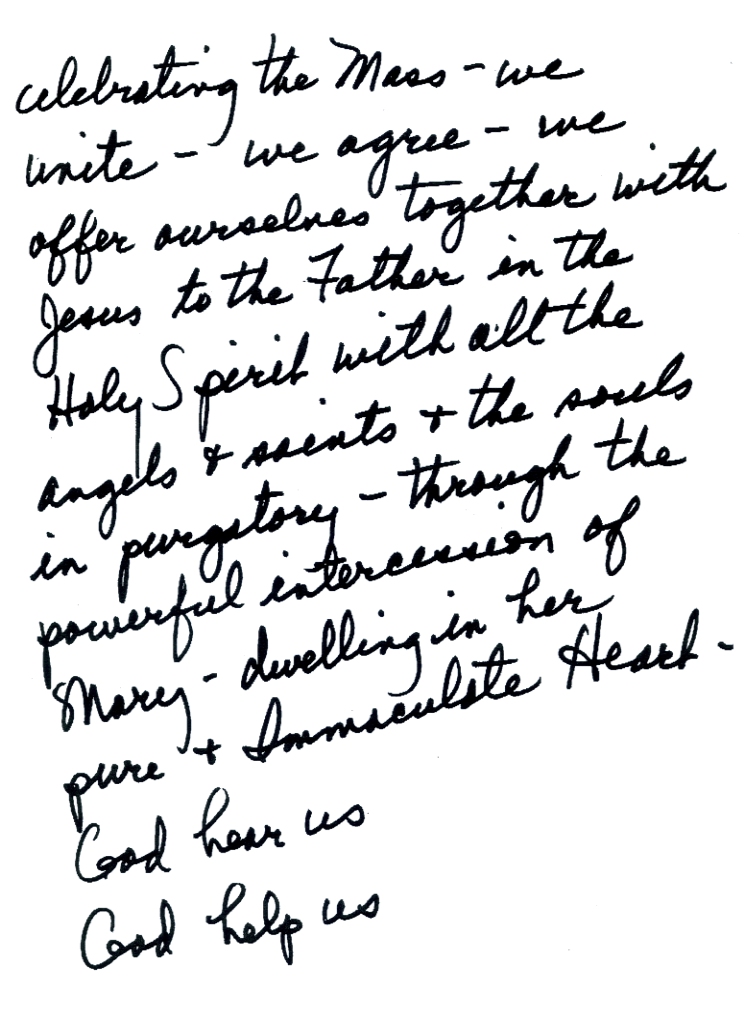 celebrating the Mass - we
unite - we agree - we
offer ourselves together with
Jesus to the Father in the
Holy Spirit with all the
angels + saints + the souls
in purgatory - through the
powerful intercession of
Mary - dwelling in her
pure + Immaculate Heart -
God hear us
God help us